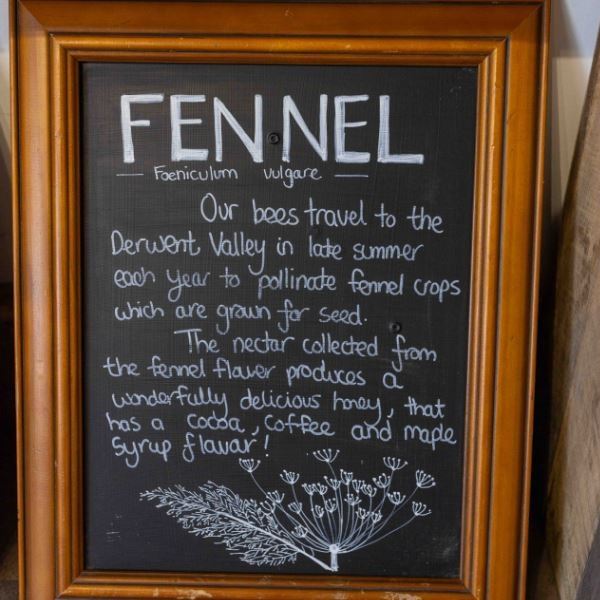 FENNEL
— Foeniculum vulgare —
Our bees travel to the
Derwent Valley in late summer
each year to pollinate fennel crops
which are grown for seed.
The nectar collected from
the fennel flower produces a
wonderfully delicious honey, that
has a cocoa, coffee and maple
syrup flavour!